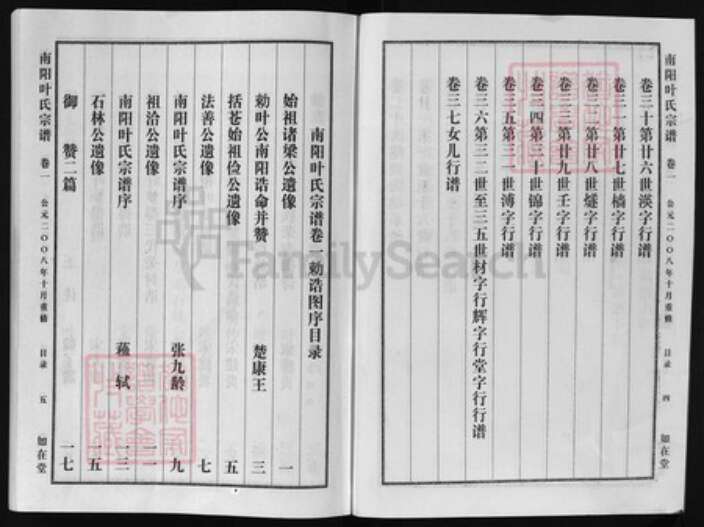 南阳叶氏宗谱 卷一 公元二〇〇八年十月重修 目录 四 如在堂
卷三十第廿六世渶字行谱
卷三一第廿七世樯字行谱
卷三二第廿八世燧字行谱
卷三三第廿九世壬字行谱
卷三四第三十世锦字行谱
卷三五第三一世溥字行谱
卷三六第三二世至三五世材字行辉字行堂字行行谱
卷三七女儿行谱
南阳叶氏宗谱卷一勅诰图序目录
始祖诸梁公遗像 一
勅叶公南阳诰命并赞 楚康王 三
括苍始祖俭公遗像 五
法善公遗像 七
南阳叶氏宗谱序 张九龄 九
祖洽公遗像 一一
南阳叶氏宗谱序 苏轼 一三
石林公遗像 一五
御赞二篇 一七
南阳叶氏宗谱 卷一 公元二〇〇八年十月重修 目录 五 如在堂
FamilySearch